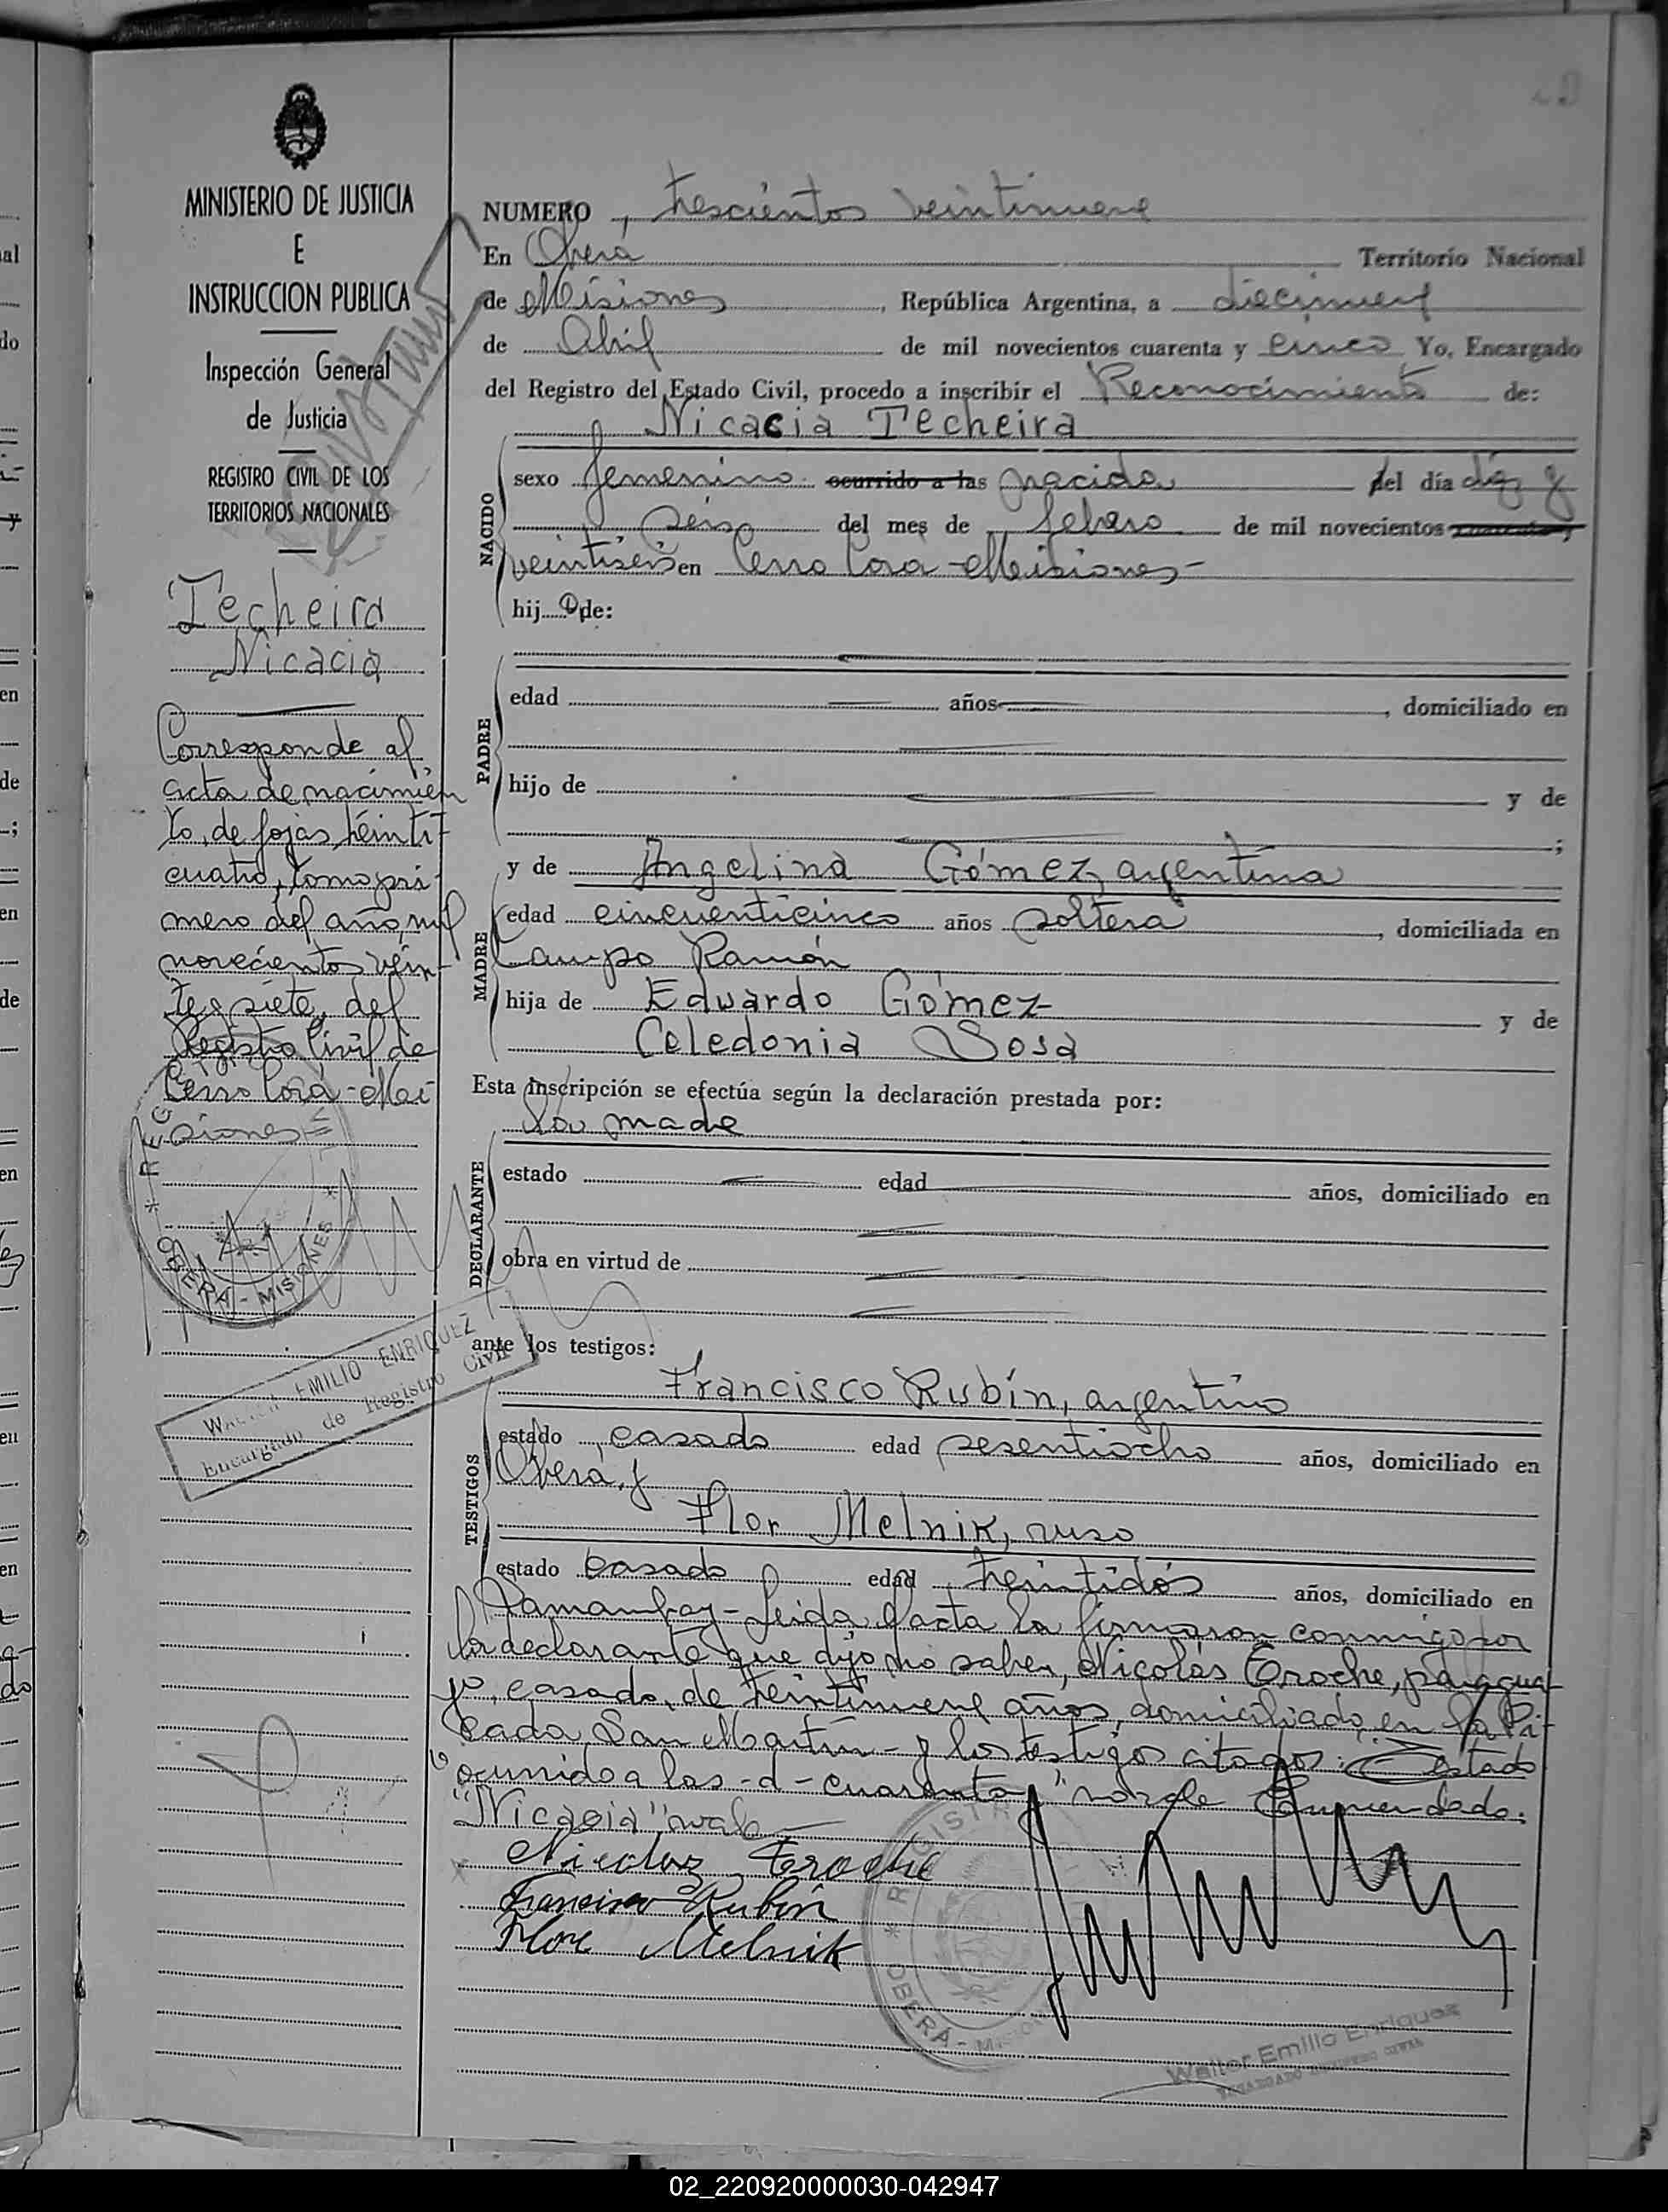 MINISTERIO DE JUSTICIA
E
INSTRUCCION PUBLICA
Inspección General
de Justicia
REGISTRO CIVIL DE LOS
TERRITORIOS NACIONALES
Techeira
Nicacia
Corresponde al
acta de nacimien
to, de fojas treinti-
cuatro, tomo pri-
mero del año mil
novecientos vein-
tisiete, del
Registro Civil de
Cerro Corá - Mi-
siones
OBERÁ - MISIONES
WALTER EMILIO ENRIQUEZ
Encargado de Registro Civil
NUMERO, trescientos veintinueve
En Oberá Territorio Nacional
de Misiones, República Argentina, a diecinueve
de Abril de mil novecientos cuarenta y cinco Yo, Encargado
del Registro del Estado Civil, procedo a inscribir el Reconocimiento de:
Nicacia Techeira
NACIDO
sexo femenino ocurrido a las nacida del día diez y
seis del mes de febrero de mil novecientos cuarenta y
veintiseis en Cerro Corá - Misiones -
hij a de:
PADRE
edad años , domiciliado en
hijo de y de
;
MADRE
y de Angelina Gómez, argentina
edad cincuenticinco años soltera, domiciliada en
Campo Ramón
hija de Eduardo Gómez y de
Celedonia Sosa
Esta inscripción se efectúa según la declaración prestada por:
la madre
DECLARANTE
estado edad años, domiciliado en
obra en virtud de
ante los testigos:
TESTIGOS
Francisco Rubín, argentino
estado casado edad sesentiocho años, domiciliado en
Oberá, y
Flor Melnik, ruso
estado casado edad treintidós años, domiciliado en
Samambay - Leida el acta la firmaron conmigo por
la declarante que dijo no saber, Nicolás Eroche, paragua-
yo, casado, de treintinueve años, domiciliado en la Pi-
cada San Martín - y los testigos citados: Testado
"ocurrido a las - d - cuarenta y" no vale Enmendado:
"Nicacia" vale
Nicolaz Eroche
Francisco Rubín
Flor Melnik
REGISTRO
OBERÁ - MISIONES
Walter Emilio Enriquez
02_220920000030-042947